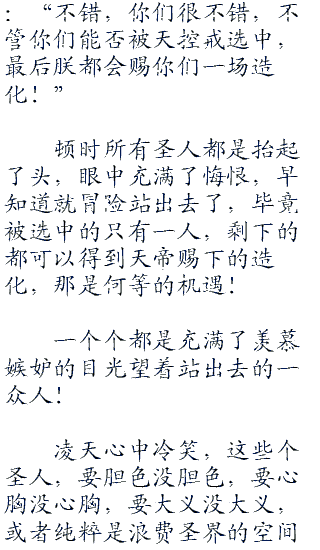 ：“不错，你们很不错，不
管你们能否被天控戒选中，
最后朕都会赐你们一场造
化！”
顿时所有圣人都是抬起
了头，眼中充满了悔恨，早
知道就冒险站出去了，毕竟
被选中的只有一人，剩下的
都可以得到天帝赐下的造
化，那是何等的机遇！
一个个都是充满了羡慕
嫉妒的目光望着站出去的一
众人！
凌天心中冷笑，这些个
圣人，要胆色没胆色，要心
胸没心胸，要大义没大义，
或者纯粹是浪费圣界的空间